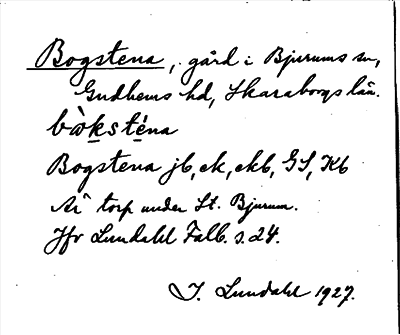 Bogstena, gård i Bjurums sn,
Gudhems hd, Skaraborgs län.
bò̀ksténa
Bogstena jb, ek, ekb, GS, Kb
Är torp under St. Bjurum.
Jfr Lundahl Falb. s. 24.
I. Lundahl 1927.